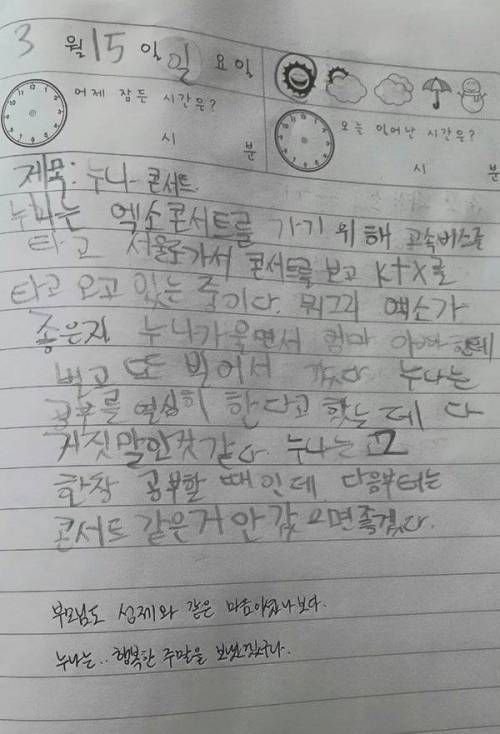 3 월 15 일 일 요일
어제 잠든 시간은?
시 분
오늘 일어난 시간은?
시 분
제목: 누나 콘서트
누나는 엑소콘서트를 가기 위해 고속버스를
타고 서울로가서 콘서트를 보고 ktx를
타고 오고 있는 중이다. 뭐그리 엑소가
좋은지 누나가울면서 엄마 아빠한테
빌고 또 빌어서 갔다. 누나는
공부를 열심히 한다고 했는데 다
거짓말인것같다. 누나는 고2
한창 공부할 때인데 다음부터는
콘서트 같은거 안갔으면좋겠다.
부모님도 성제와 같은 마음이셨나보다.
누나는.. 행복한 주말을 보냈겠구나..